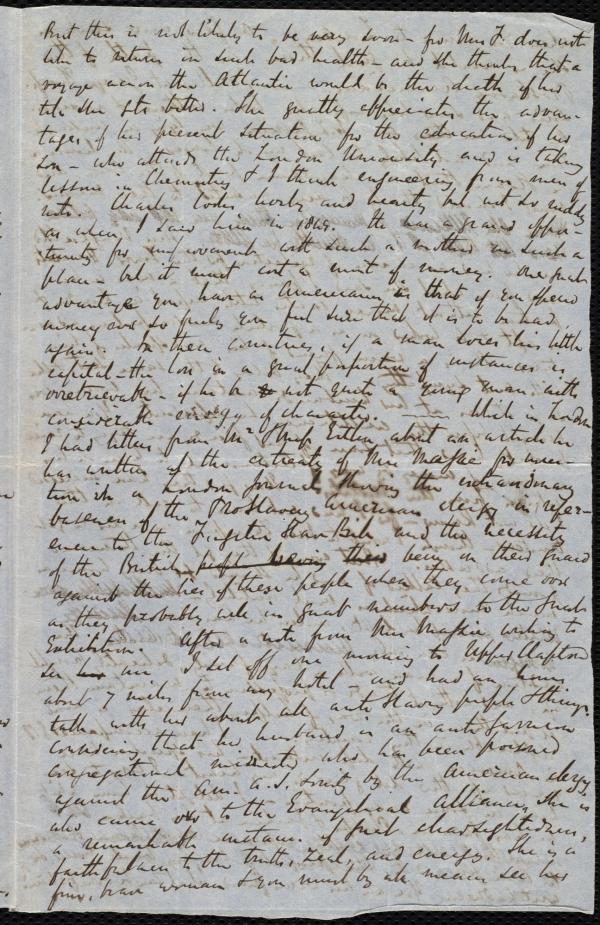 But this is not likely to be very soon - for Mrs F. does not
like to return in such bad health - and she thinks that a
voyage across the Atlantic would be the death of her
till she gets better. She greatly appreciates the advan-
tages of her present situation for the education of her
son - who attends the London University and is taking
lessons in Chemistry & I think engineering from men of
note. Charles looks lively and hearty but not so ruddy
as when I saw him in 1849. He has a grand oppor-
tunity for improvement with such a mother in such a
place - but it must cost a mint of money. One great
advantage you have as Americans is that if you spend
money ever so freely you feel sure that it is to be had
again. In these countries, if a man loses his little
capital - the loss in a great proportion of instances is
irretrievable - if he be not quite a young man with
considerable energy of character. —— While in London
I had letters from Mr Estlin about an article he
has written at the entreaty of Mrs Massie for inser-
tion in a London Journal showing the extraordinary
baseness of the Proslavery American clergy in refer-
ence to the Fugitive Slave Bill and the necessity
of the British people having their been on their guard
against the lies of these people when they come over
as they probably will in great numbers to the Great
Exhibition. After a note from Mrs Massie asking to
see me I set off one morning to Upper Clapton
about 7 miles from my hotel - and had an hours
talk with her about all anti slavery people & things.
Considering that her husband is an anti Garrison
congregational minister, who has been poisoned
against the Am. A. S. Society by the American clergy
who came over to the Evangelical Alliance, she is
a remarkable instance of great clearsightedness,
faithfulness to the truth, zeal, and energy. She is a
fine, brave woman & you must by all means see her